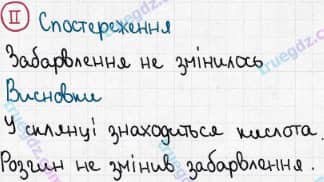 II Спостереження
Забарвлення не змінилось
Висновки
У склянці знаходиться кислота.
Розчин не змінив забарвлення.